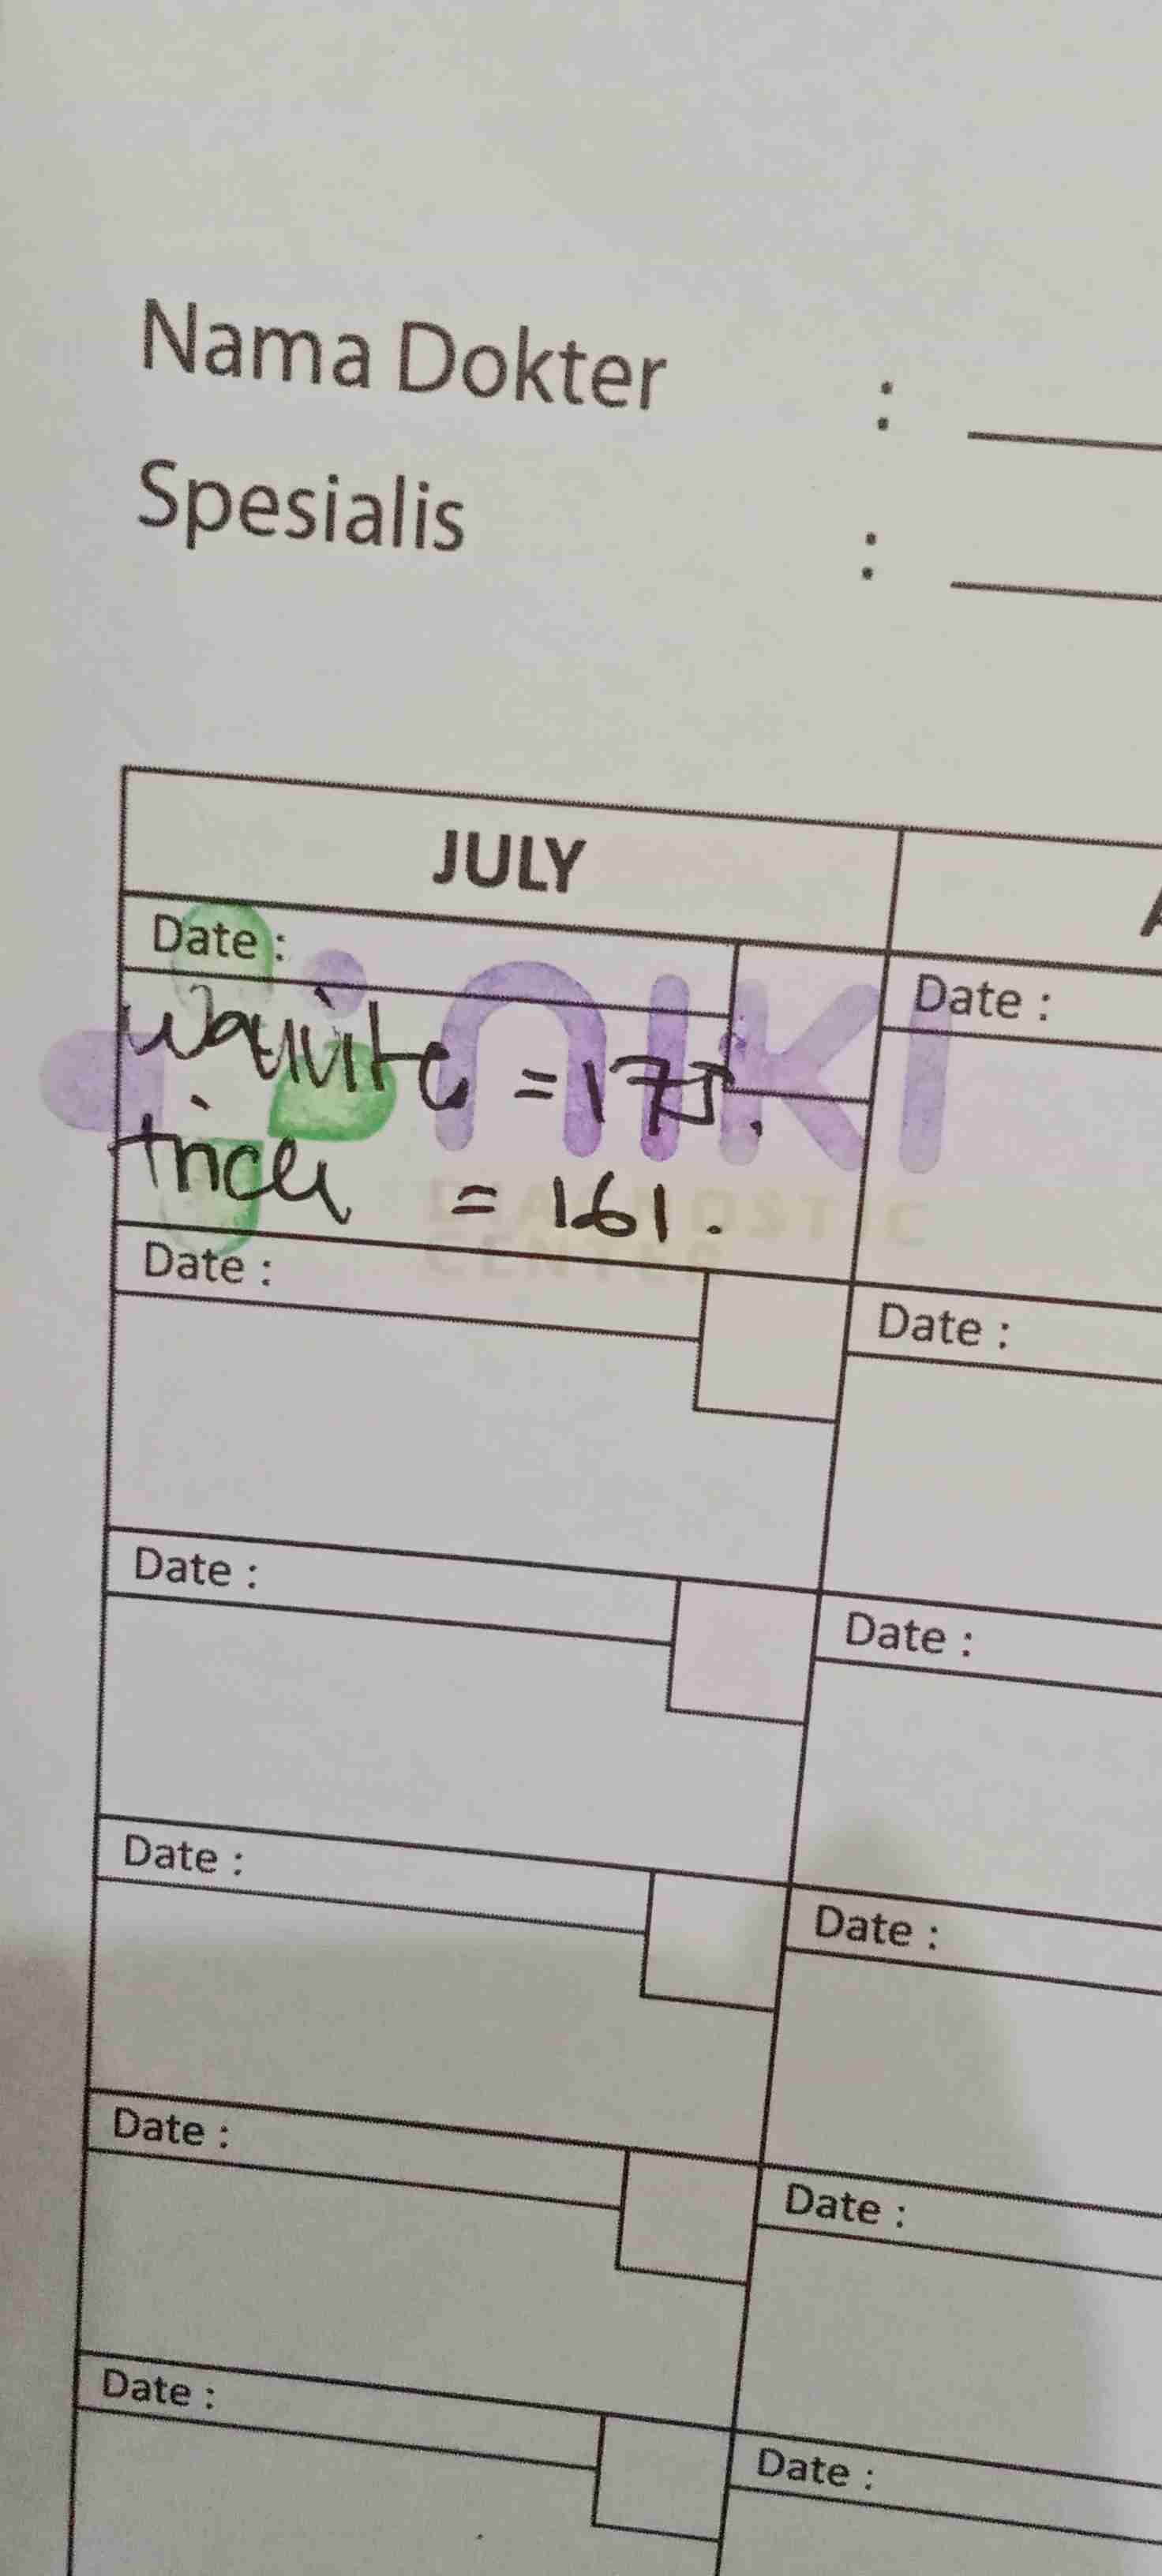 Nama Dokter :
Spesialis :
JULY
Date :
Date :
= 175.
= 161.
NIKI
DIAGNOSTIC
CENTER
Date :
Date :
Date :
Date :
Date :
Date :
Date :
Date :
Date :
Date :